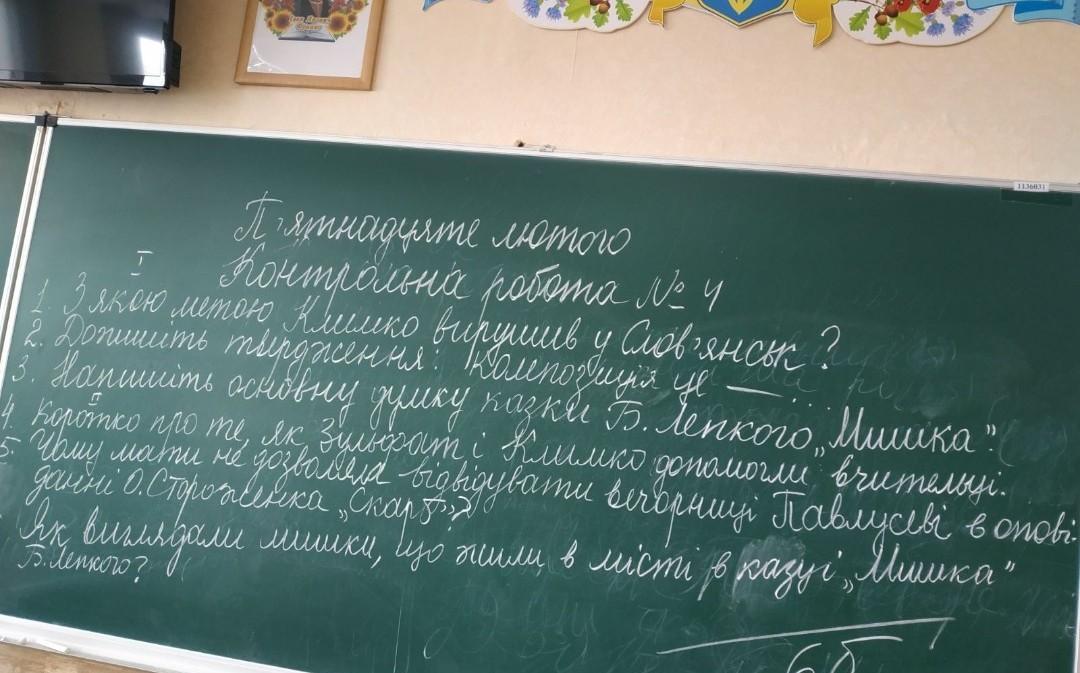 1136031
П'ятнадцяте лютого
Контрольна робота № 4
I
1. З якою метою Климко вирушив у Слов'янськ?
2. Допишіть твердження: Композиція це —...
3. Напишіть основну думку казки Б. Лепкого „Мишка".
II
4. Коротко про те, як Зульфат і Климко допомогли вчительці.
5. Чому мати не дозволяла відвідувати вечорниці Павлусеві в опові-
данні О. Стороженка „Скарб"?
Як виглядали мишки, що жили в місті в казці „Мишка"
Б. Лепкого?
6Б